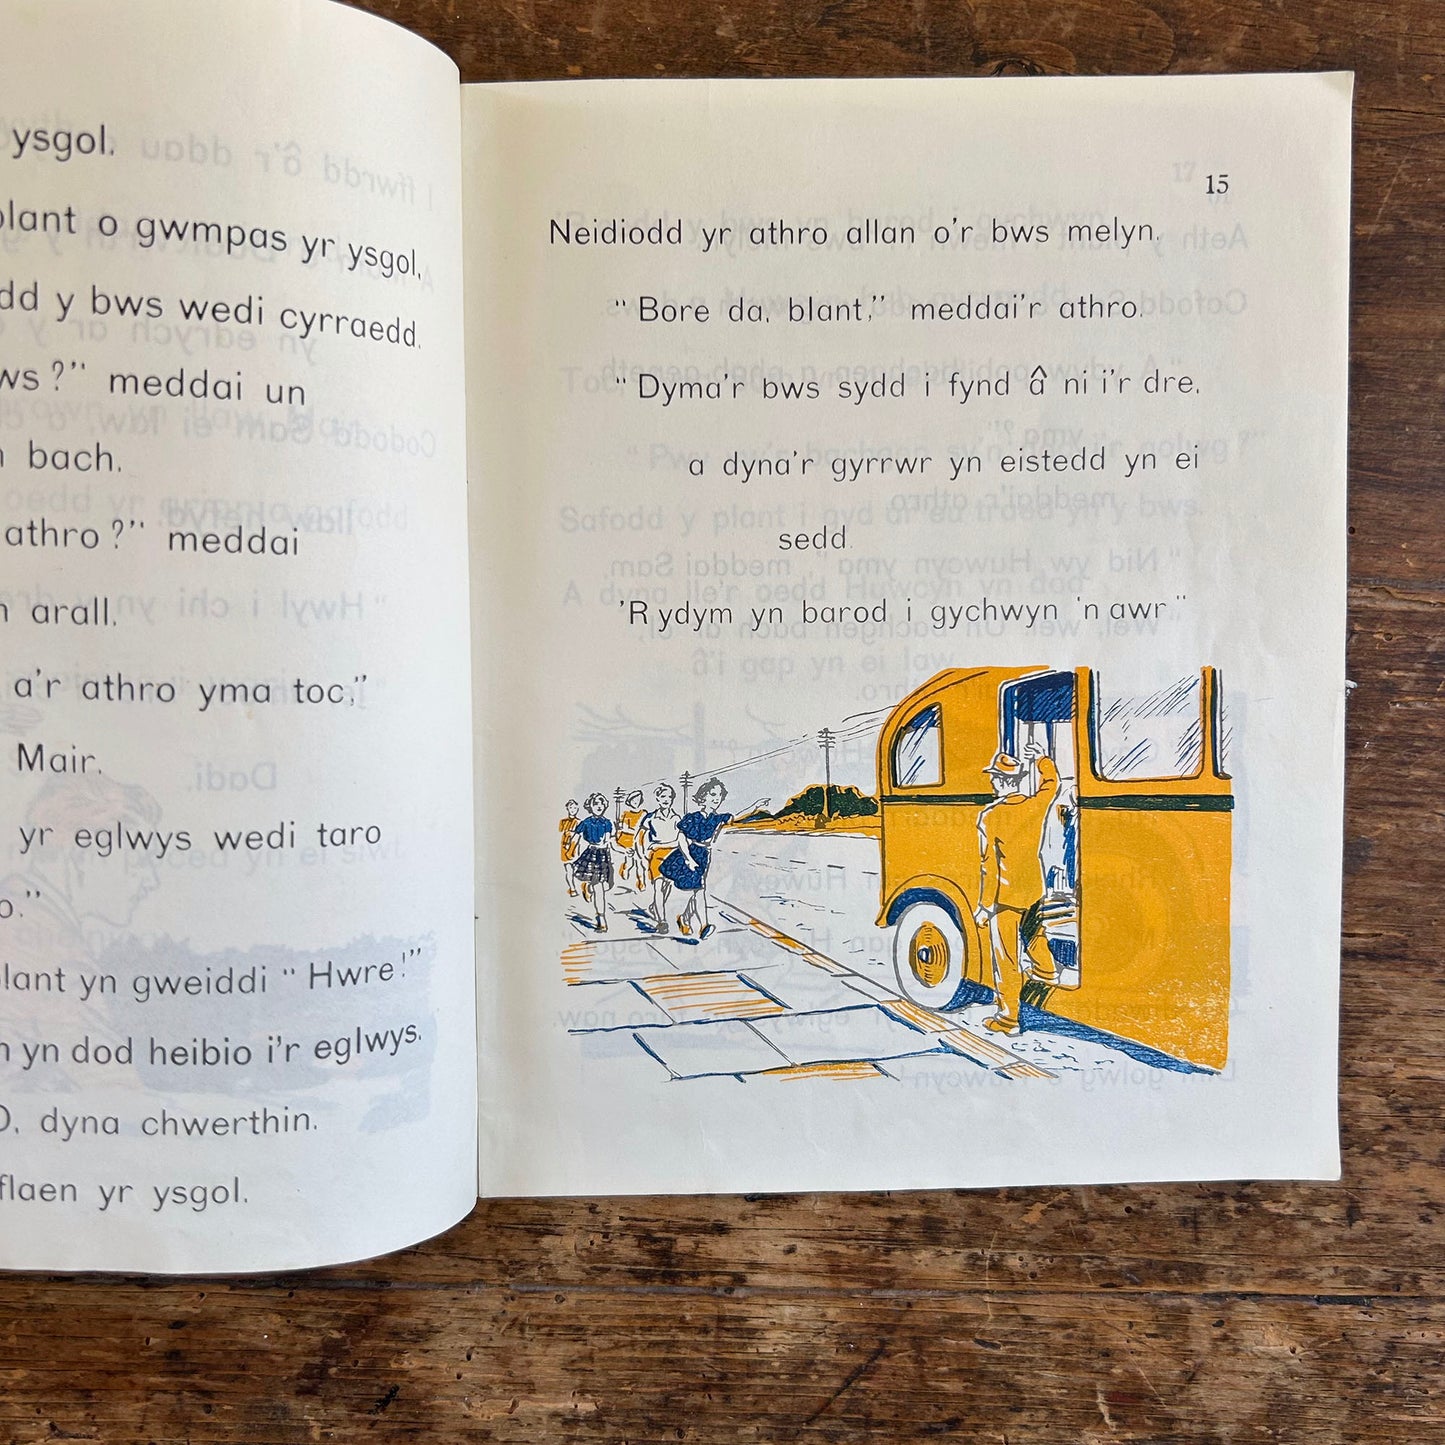 ysgol.
plant o gwmpas yr ysgol,
y bws wedi cyrraedd.
?" meddai un
bach.
athro?" meddai
arall.
a'r athro yma toc,"
Mair.
yr eglwys wedi taro
plant yn gweiddi "Hwre!"
yn dod heibio i'r eglwys.
O, dyna chwerthin.
flaen yr ysgol.
15
Neidiodd yr athro allan o'r bws melyn.
"Bore da, blant," meddai'r athro.
"Dyma'r bws sydd i fynd â ni i'r dre.
a dyna'r gyrrwr yn eistedd yn ei
sedd.
'Rydym yn barod i gychwyn 'n awr"